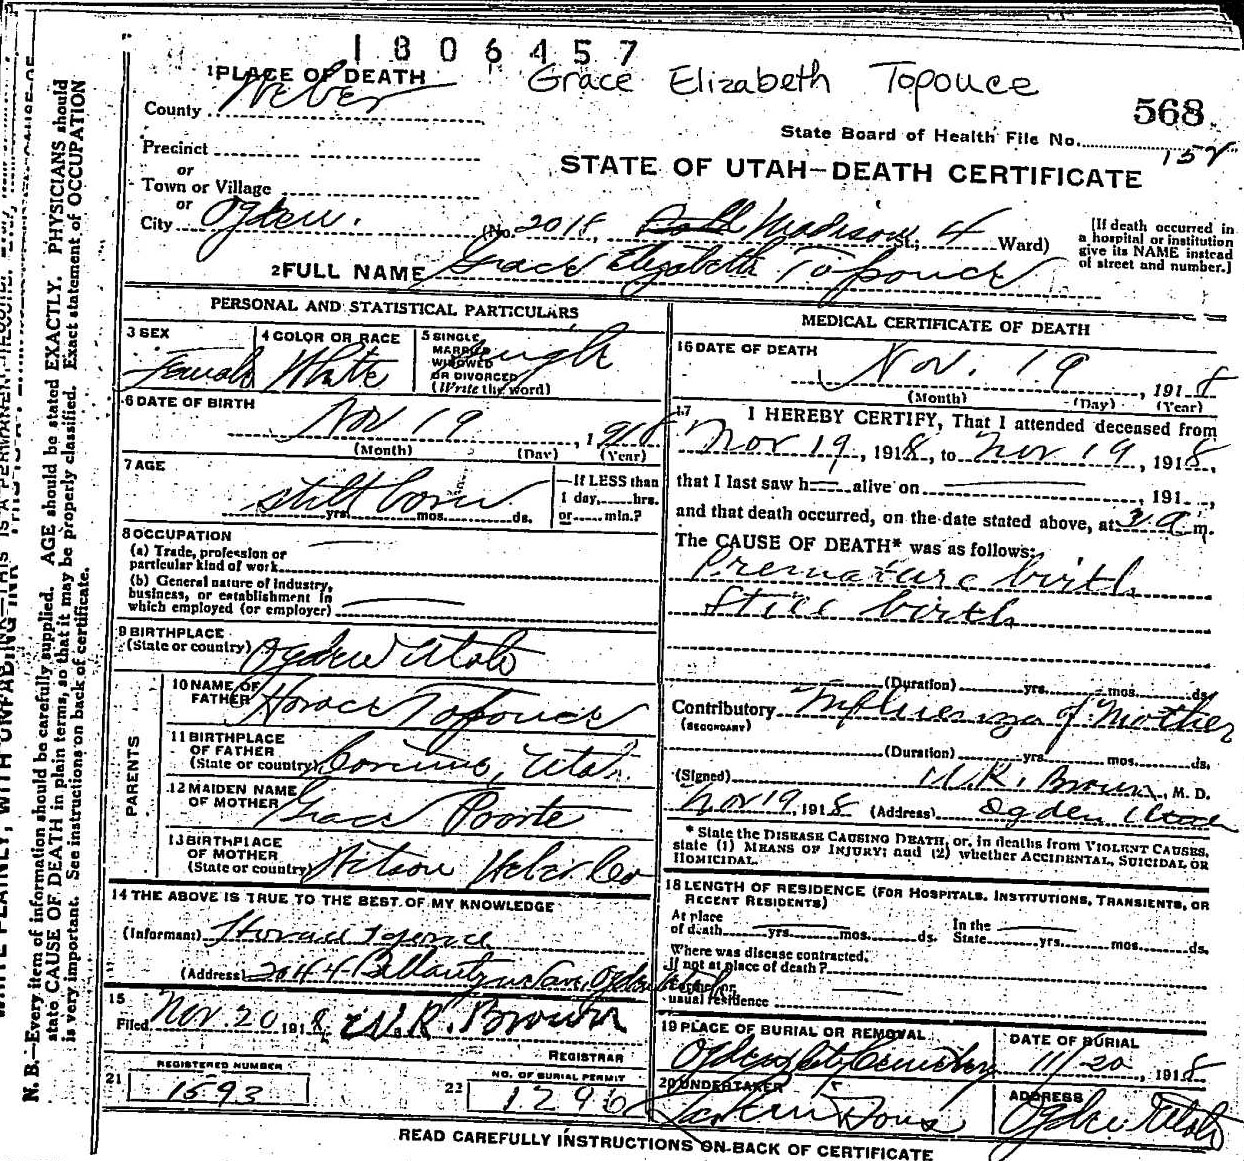 1806457
Grace Elizabeth Topouce
1 PLACE OF DEATH
County Weber
568
State Board of Health File No.
Precinct
or
Town or Village
or
STATE OF UTAH—DEATH CERTIFICATE
City Ogden. (No. 2018, Madison St.; 4 Ward)
[If death occurred in
a hospital or institution
give its NAME instead
of street and number.]
2 FULL NAME Grace Elizabeth Topouce
PERSONAL AND STATISTICAL PARTICULARS
3 SEX
Female
4 COLOR OR RACE
White
5 SINGLE
MARRIED
WIDOWED
OR DIVORCED
(Write the word)
Single
6 DATE OF BIRTH
Nov 19, 1918
(Month) (Day) (Year)
7 AGE
Still born
yrs. mos. ds.
If LESS than
1 day, hrs.
or min.?
8 OCCUPATION
(a) Trade, profession or
particular kind of work
(b) General nature of industry,
business, or establishment in
which employed (or employer)
9 BIRTHPLACE
(State or country) Ogden Utah
PARENTS
10 NAME OF
FATHER Horace Topouce
11 BIRTHPLACE
OF FATHER
(State or country) Corinne, Utah.
12 MAIDEN NAME
OF MOTHER Grace Poorte
13 BIRTHPLACE
OF MOTHER
(State or country) Wilson Weber Co
14 THE ABOVE IS TRUE TO THE BEST OF MY KNOWLEDGE
(Informant) Horace Topouce
(Address) 2044
15
Filed Nov. 20 1918, W.R. Brown
REGISTRAR
REGISTERED NUMBER
21 1593
NO. OF BURIAL PERMIT
22 1296
MEDICAL CERTIFICATE OF DEATH
16 DATE OF DEATH
Nov. 19, 1918
(Month) (Day) (Year)
17 I HEREBY CERTIFY, That I attended deceased from
Nov 19, 1918, to Nov 19, 1918,
that I last saw h alive on , 191 ,
and that death occurred, on the date stated above, at 3 a m.
The CAUSE OF DEATH* was as follows:
Premature birth
Still birth
(Duration) yrs. mos. ds.
Contributory Influenza of Mother
(SECONDARY)
(Duration) yrs. mos. ds.
(Signed) W.R. Brown, M. D.
Nov 19, 1918 (Address) Ogden Utah
* State the DISEASE CAUSING DEATH, or, in deaths from VIOLENT CAUSES,
state (1) MEANS OF INJURY; and (2) whether ACCIDENTAL, SUICIDAL OR
HOMICIDAL.
18 LENGTH OF RESIDENCE (FOR HOSPITALS, INSTITUTIONS, TRANSIENTS, OR
RECENT RESIDENTS)
At place
of death yrs. mos. ds.
In the
State yrs. mos. ds.
Where was disease contracted,
If not at place of death?
Former or
usual residence
19 PLACE OF BURIAL OR REMOVAL
Ogden City Cemetery
DATE OF BURIAL
11/20, 1918
20 UNDERTAKER
Larkin Sons
ADDRESS
Ogden Utah
READ CAREFULLY INSTRUCTIONS ON BACK OF CERTIFICATE
N. B.—Every item of information should be carefully supplied. AGE should be stated EXACTLY. PHYSICIANS should
state CAUSE OF DEATH in plain terms, so that it may be properly classified. Exact statement of OCCUPATION
is very important. See instructions on back of certificate.